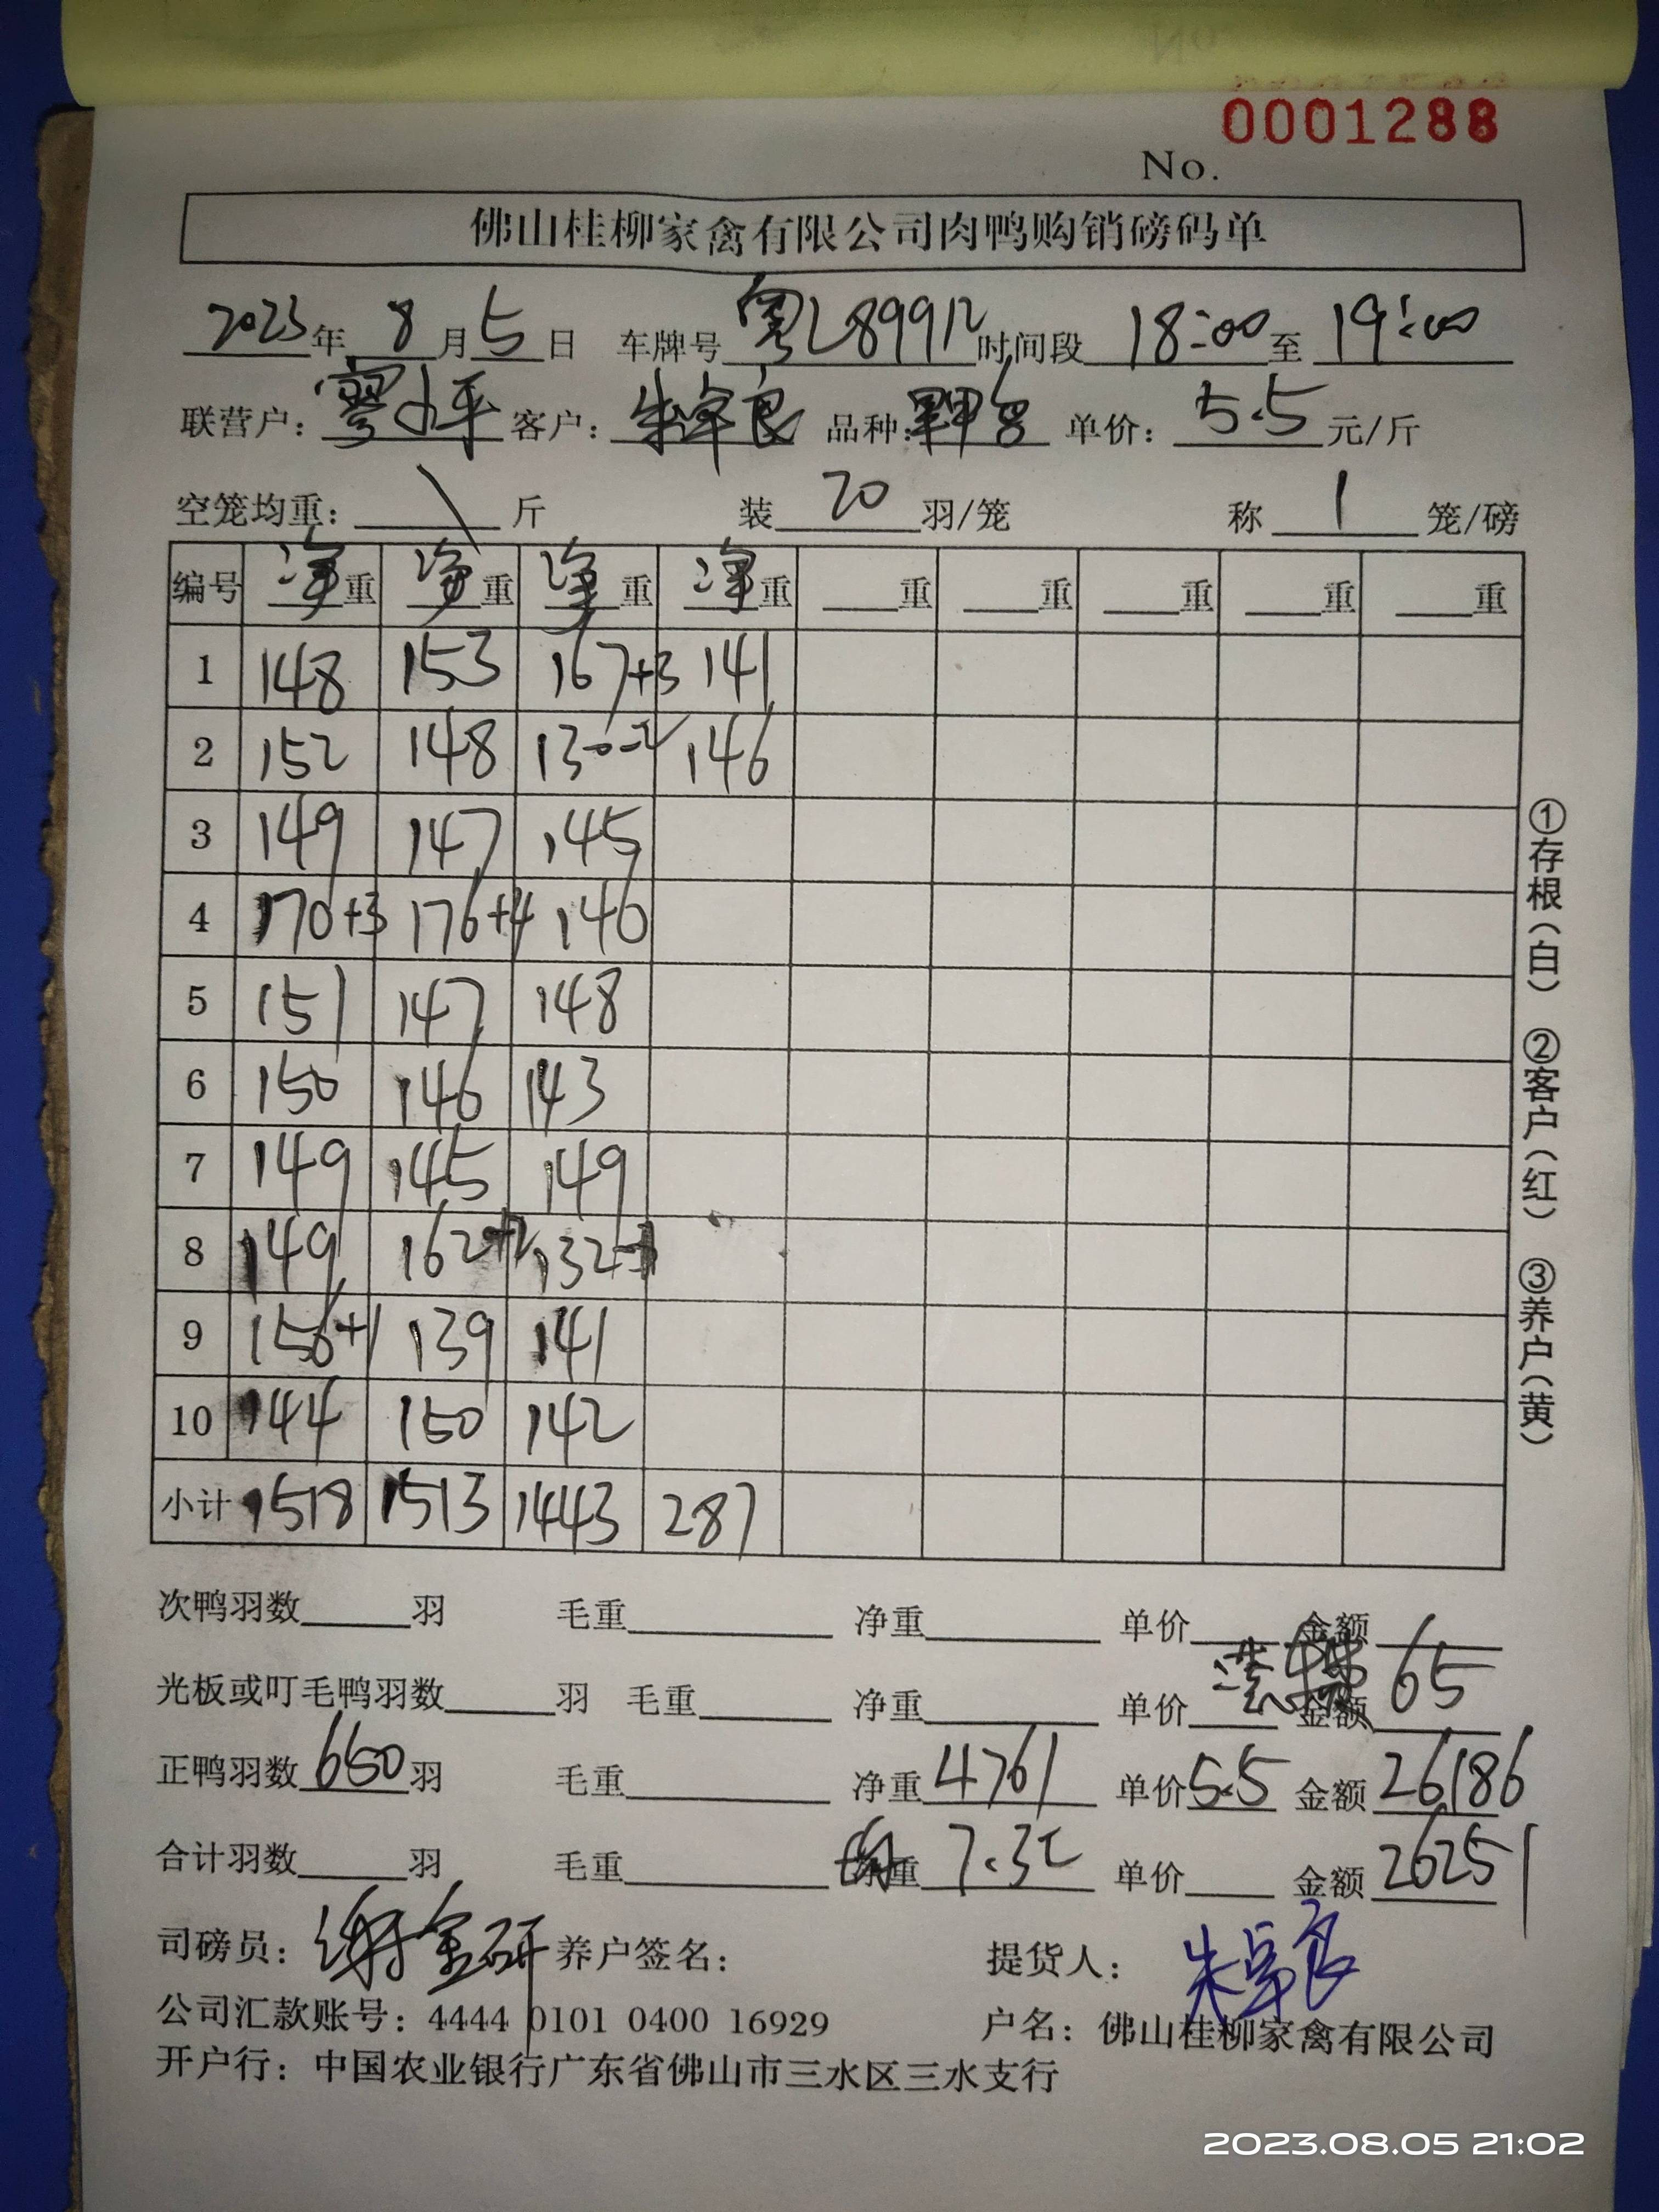 0001288
No.
佛山桂柳家禽有限公司肉鸭购销磅码单
2023年 8月5日 车牌号 粤L89912 时间段 18:00至 19:00
联营户: 廖小平 客户: 朱卓良 品种: 单价: 5.5元/斤
空笼均重: \ 斤 装 20 羽/笼 称 1 笼/磅
编号 净重 净重 净重 净重 重 重 重 重 重
1 148 153 167+3 141
2 152 148 130-2 146
3 149 147 145
4 170+3 176+4 146
5 151 147 148
6 150 146 143
7 149 145 149
8 149 162+2 132-1
9 156+1 139 141
10 144 150 142
小计 1518 1513 1443 287
次鸭羽数 羽 毛重 净重 单价 金额
光板或叮毛鸭羽数 羽 毛重 净重 单价 金额 65
正鸭羽数 650 羽 毛重 净重 4761 单价 5.5 金额 26186
合计羽数 羽 毛重 均重 7.32 单价 金额 26251
司磅员: 谢金研 养户签名: 提货人: 朱卓良
公司汇款账号: 4444 0101 0400 16929 户名: 佛山桂柳家禽有限公司
开户行: 中国农业银行广东省佛山市三水区三水支行
①存根(白) ②客户(红) ③养户(黄)
2023.08.05 21:02